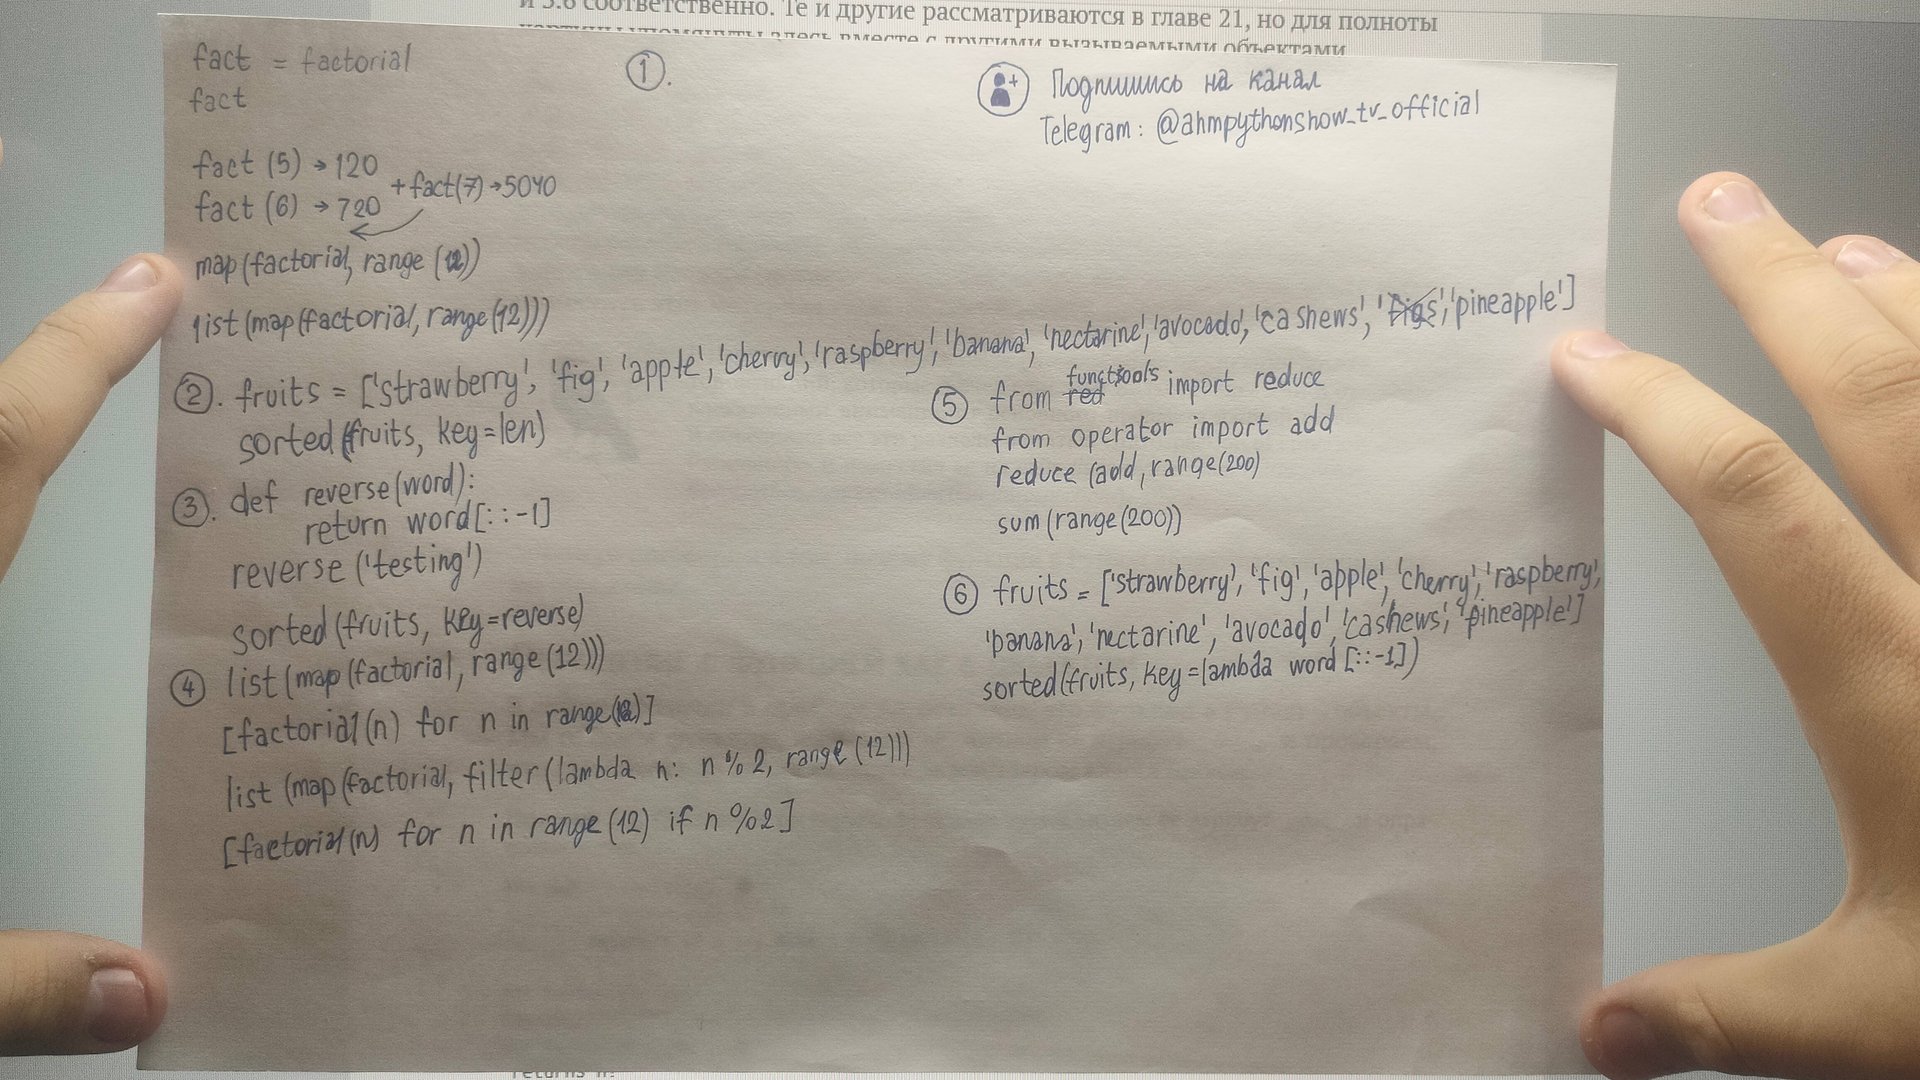 и 3.6 соответственно. Те и другие рассматриваются в главе 21, но для полноты
картины упомянуты здесь вместе с другими вызываемыми объектами
fact = factorial
fact
①.
Подпишись на канал
Telegram: @ahmpythonshow_tv_official
fact (5) → 120
fact (6) → 720
+ fact(7) → 5040
map(factorial, range (12))
list (map(factorial, range(12)))
②. fruits = ['strawberry', 'fig', 'apple', 'cherry', 'raspberry', 'banana', 'nectarine', 'avocado', 'cashews', 'figs', 'pineapple']
sorted (fruits, key=len)
③. def reverse(word):
return word[::-1]
reverse ('testing')
sorted (fruits, key=reverse)
④ list (map (factorial, range (12)))
[factorial (n) for n in range(12)]
list (map (factorial, filter (lambda n: n % 2, range (12)))
[factorial (n) for n in range (12) if n % 2]
⑤ from red functools import reduce
from operator import add
reduce (add, range(200)
sum (range (200))
⑥ fruits = ['strawberry', 'fig', 'apple', 'cherry', 'raspberry',
'banana', 'nectarine', 'avocado', 'cashews', 'pineapple']
sorted (fruits, key=lambda word [::-1])
returns n!